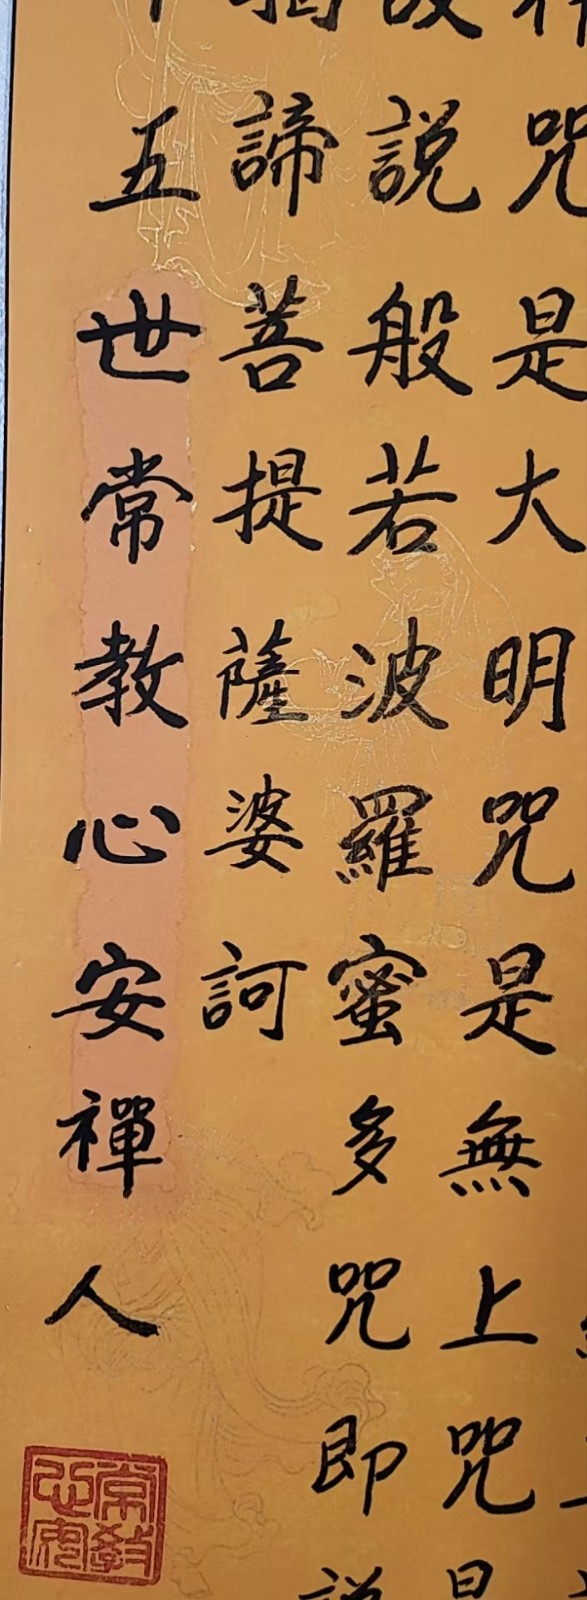 咒是大明咒是無上咒是
故說般若波羅蜜多咒即說
揭諦菩提薩婆訶
五世常教心安禪人
常教心安